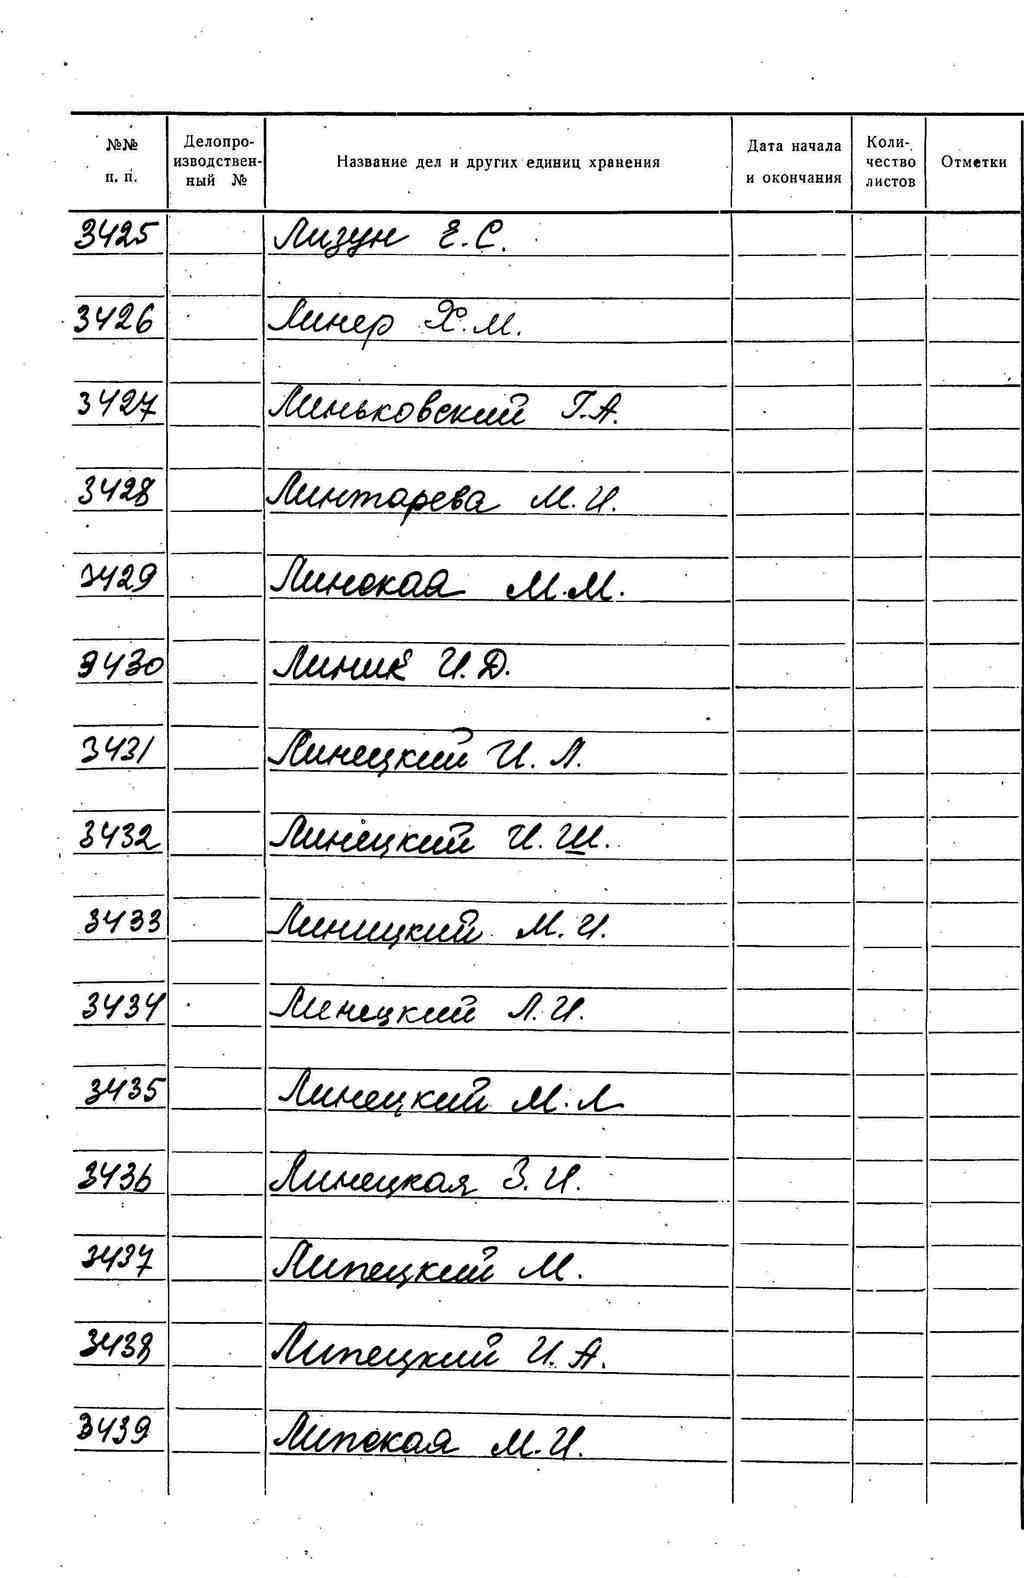 №№ п. п.
Делопро-
изводствен-
ный №
Название дел и других единиц хранения
Дата начала
и окончания
Коли-
чество
листов
Отметки
3425 Лизун Е.С.
3426 Линер Х.М.
3427 Линьковский Г.А.
3428 Линтарева М.И.
3429 Линская М.М.
3430 Линик И.Д.
3431 Линецкий И.Л.
3432 Линецкий И.Ш.
3433 Линицкий М.И.
3434 Линецкий Л.И.
3435 Линецкий М.Л
3436 Линецкая З.И.
3437 Липецкий М.
3438 Липецкий И.А.
3439 Липская М.И.